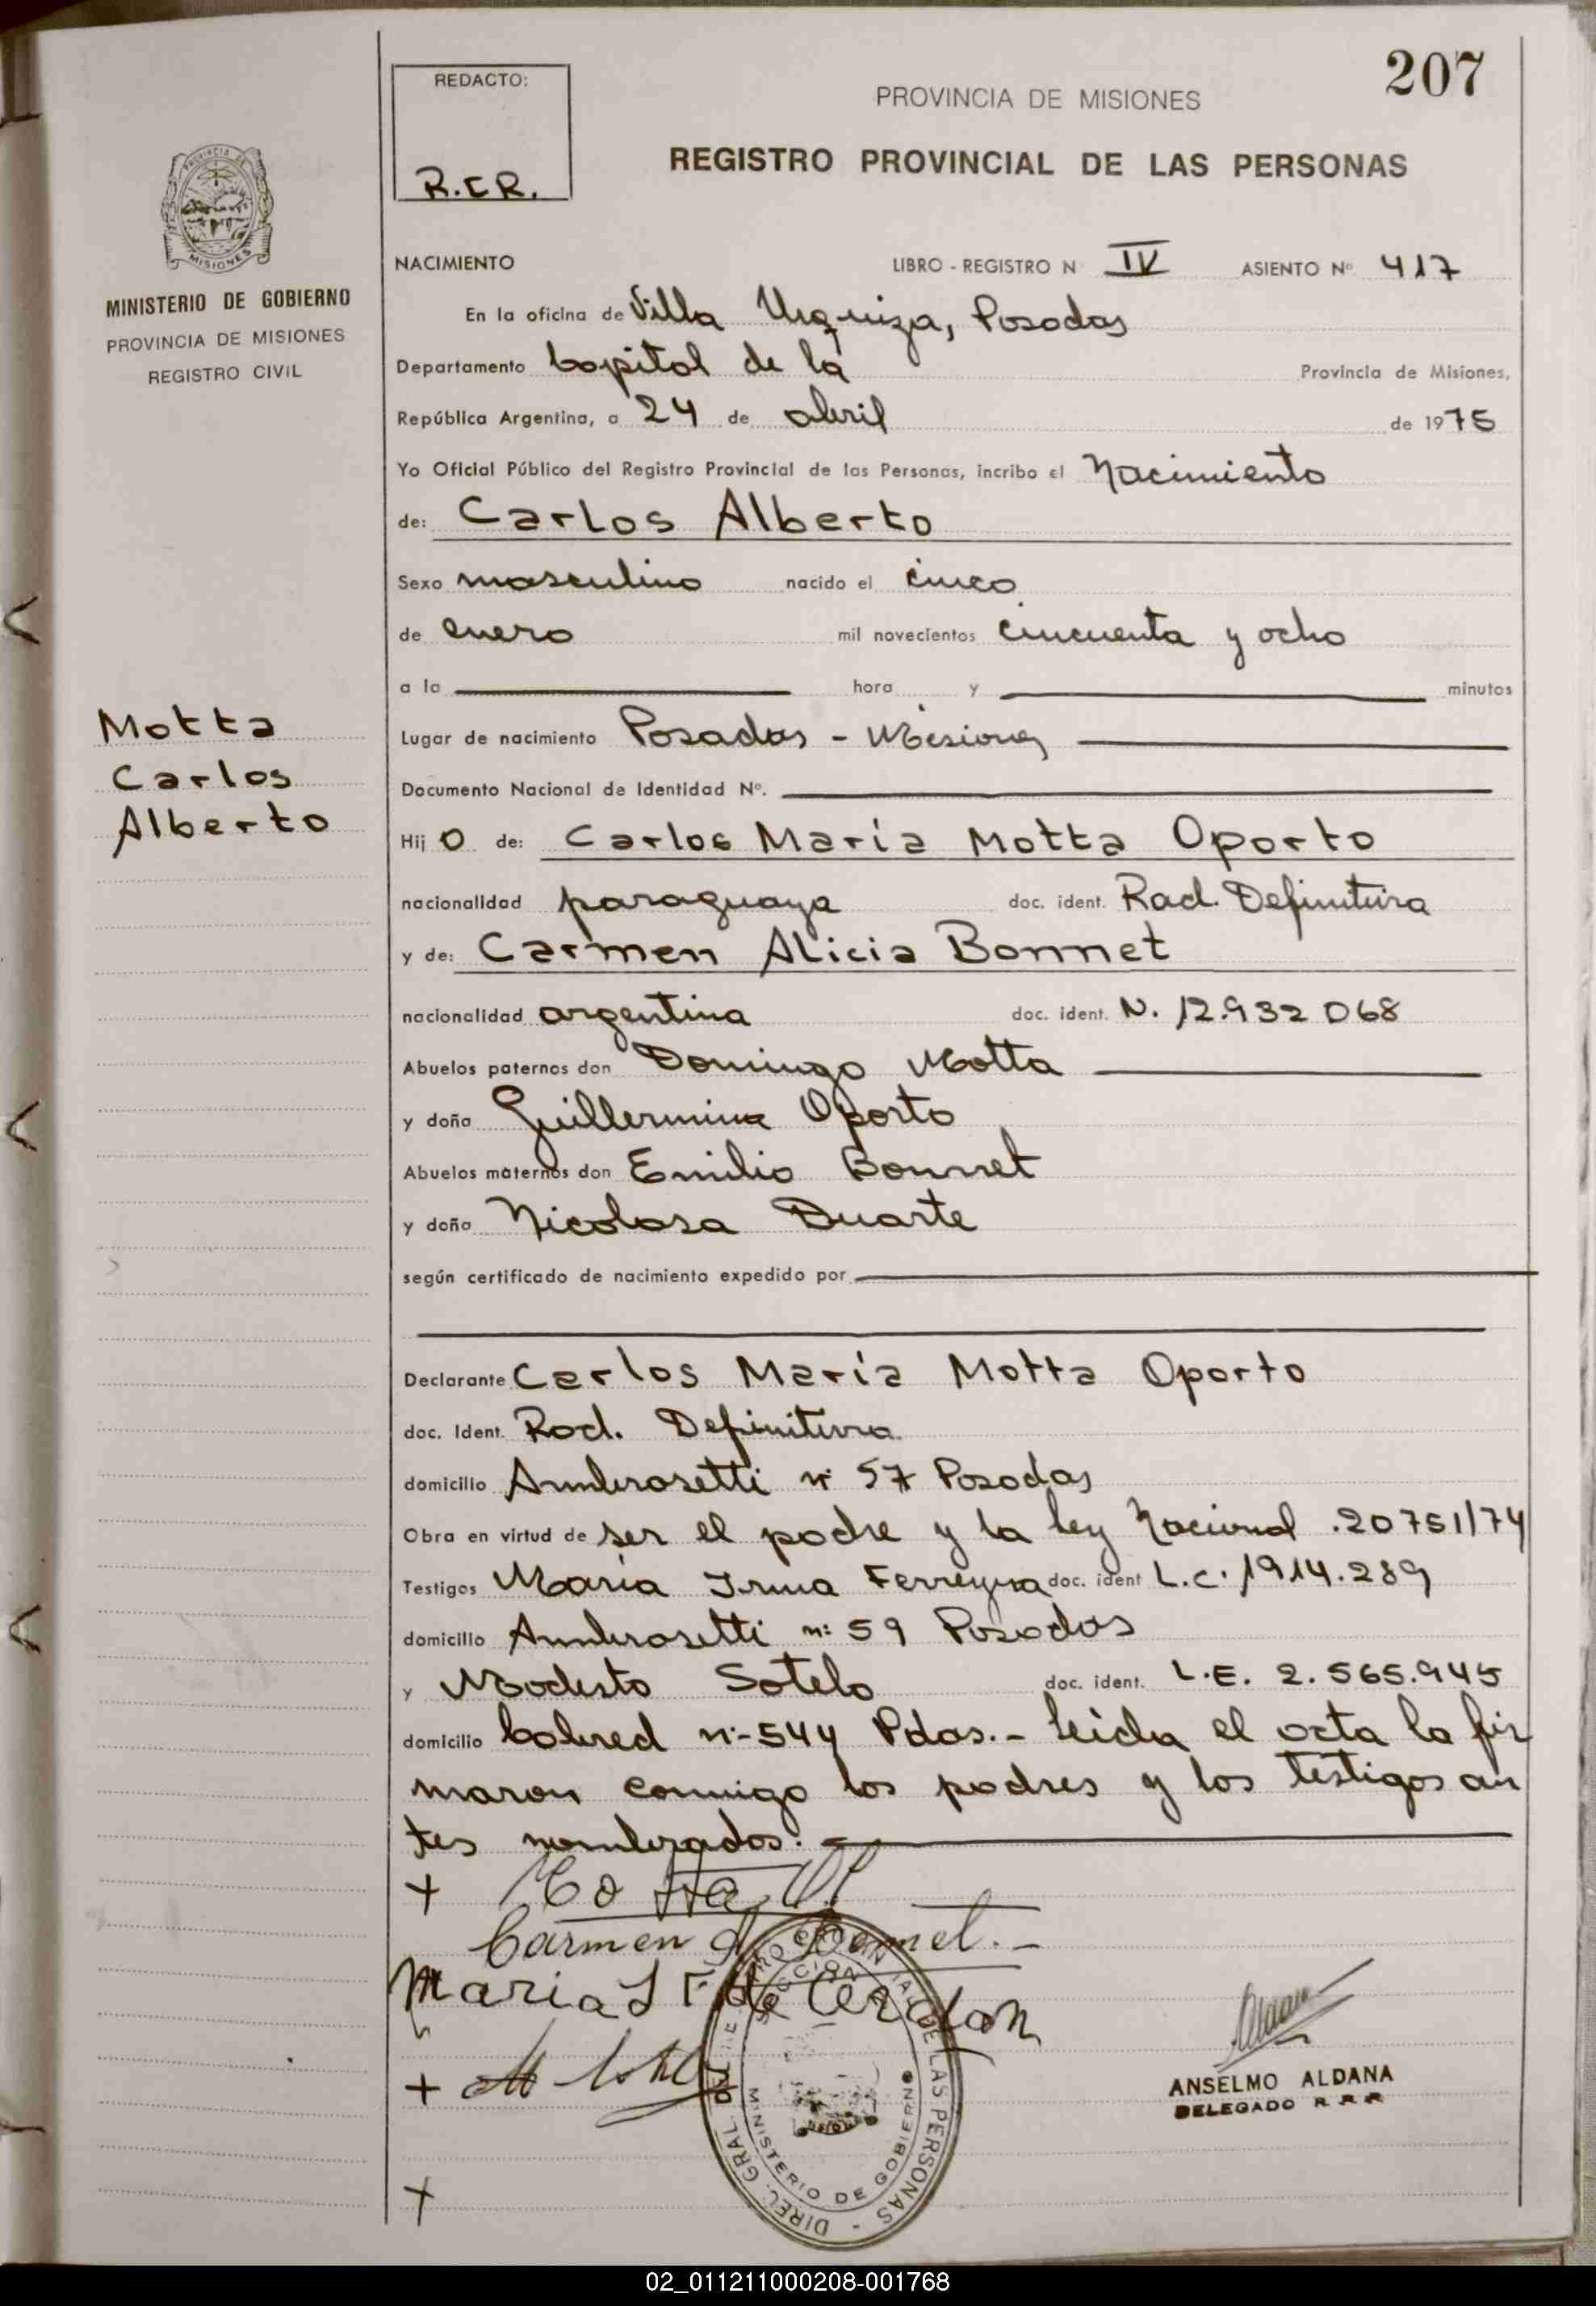 207
REDACTO:
R.C.R.
PROVINCIA DE MISIONES
REGISTRO PROVINCIAL DE LAS PERSONAS
PROVINCIA DE
MISIONES
MINISTERIO DE GOBIERNO
PROVINCIA DE MISIONES
REGISTRO CIVIL
NACIMIENTO LIBRO - REGISTRO N IV ASIENTO Nº 417
En la oficina de Villa Urquiza, Posadas
Departamento Capital de la Provincia de Misiones,
República Argentina, a 24 de abril de 1975
Yo Oficial Público del Registro Provincial de las Personas, incribo el Nacimiento
de: Carlos Alberto
Sexo masculino nacido el cinco
de enero mil novecientos cincuenta y ocho
a la hora y minutos
Motta
Carlos
Alberto
Lugar de nacimiento Posadas - Misiones
Documento Nacional de Identidad Nº.
Hij o de: Carlos María Motta Oporto
nacionalidad paraguaya doc. ident. Rad. Definitiva
y de: Carmen Alicia Bonnet
nacionalidad argentina doc. ident. N. 12.932 068
Abuelos paternos don Domingo Motta
y doña Guillermina Oporto
Abuelos maternos don Emilio Bonnet
y doña Nicolasa Duarte
según certificado de nacimiento expedido por
Declarante Carlos María Motta Oporto
doc. Ident. Rad. Definitiva
domicilio Ambrosetti nº 57 Posadas
Obra en virtud de ser el padre y la ley Nacional .20751/74
Testigos María Irma Ferreyra doc. ident L.C. 1914.289
domicilio Ambrosetti nº 59 Posadas
y Modesto Sotelo doc. ident. L.E. 2.565.945
domicilio Cabred nº-544 Pdas.- leída el acta la fir
maron conmigo los padres y los testigos an
tes nombrados.
+ Motta
Carmen A Bonnet.-
Maria I F de
+
ANSELMO ALDANA
DELEGADO R R R
DIREC. GRAL. DE LAS PERSONAS
MINISTERIO DE GOBIERNO
+
02_011211000208-001768